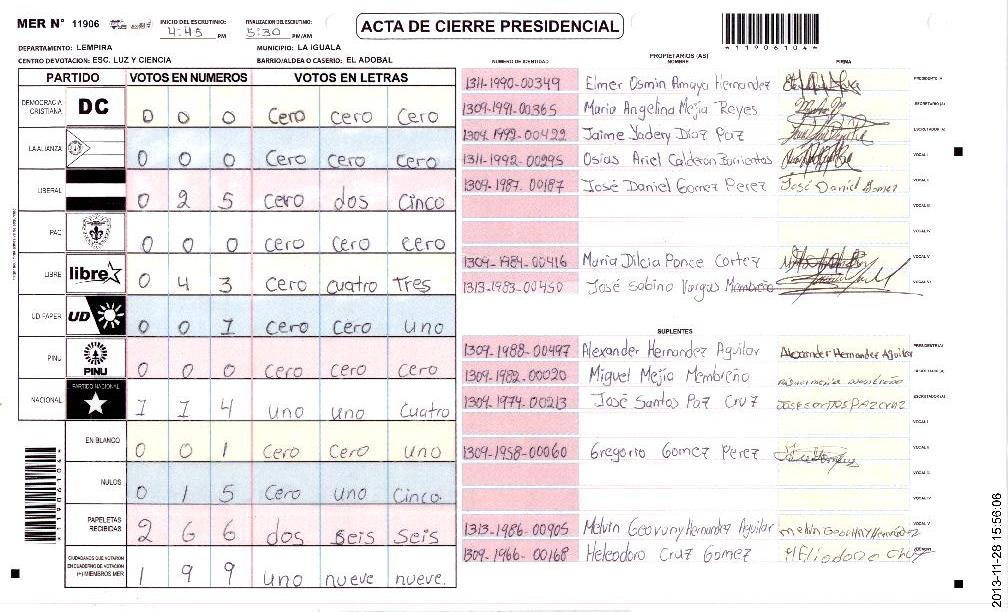 MER N° 11906
INICIO DEL ESCRUTINIO: 4:45 PM
FINALIZACION DEL ESCRUTINIO: 5:30 PM/AM
ACTA DE CIERRE PRESIDENCIAL
*11906104*
DEPARTAMENTO: LEMPIRA
MUNICIPIO: LA IGUALA
CENTRO DE VOTACION: ESC. LUZ Y CIENCIA
BARRIO/ALDEA O CASERIO: EL ADOBAL
PARTIDO VOTOS EN NUMEROS VOTOS EN LETRAS
DEMOCRACIA CRISTIANA DC 0 0 0 Cero Cero Cero
LA ALIANZA 0 0 0 Cero Cero Cero
LIBERAL 0 2 5 Cero dos Cinco
PAC 0 0 0 Cero Cero Cero
LIBRE libre 0 4 3 Cero cuatro Tres
UD FAPER UD 0 0 1 Cero Cero uno
PINU PINU 0 0 0 Cero Cero Cero
NACIONAL PARTIDO NACIONAL 1 1 4 uno uno Cuatro
EN BLANCO 0 0 1 Cero Cero uno
NULOS 0 1 5 Cero uno Cinco
PAPELETAS RECIBIDAS 2 6 6 dos seis seis
CIUDADANOS QUE VOTARON EN CUADERNO DE VOTACION (+) MIEMBROS MER 1 9 9 uno nueve nueve.
*11906104*
PROPIETARIOS (AS)
NUMERO DE IDENTIDAD NOMBRE FIRMA
1311-1990-00349 Elmer Osmin Amaya Hernandez PRESIDENTE (A)
1309-1991-00365 Maria Angelina Mejia Reyes SECRETARIO (A)
1309-1992-00422 Jaime Yadery Diaz Paz ESCRUTADOR (A)
1311-1992-00295 Osias Ariel Calderon Barrientos VOCAL I
1309-1987-00187 José Daniel Gomez Perez José Daniel Gomez VOCAL II
VOCAL III
VOCAL IV
1309-1984-00416 Maria Dilcia Ponce Cortez VOCAL V
1313-1983-00450 José Sabino Vargas Membreño VOCAL VI
SUPLENTES
1309-1988-00497 Alexander Hernandez Aguilar Alexander Hernandez Aguilar PRESIDENTE (A)
1309-1982-00020 Miguel Mejia Membreño SECRETARIO (A)
1309-1974-00213 José Santos Paz Cruz JOSE SANTOS PAZ CRUZ ESCRUTADOR (A)
VOCAL I
1309-1958-00060 Gregorio Gomez Perez VOCAL II
VOCAL III
VOCAL IV
1313-1986-00905 Melvin Geovany Hernandez Aguilar VOCAL V
1309-1966-00168 Heleodoro Cruz Gomez HEliodoro Cruz
2013-11-28 15:56:06